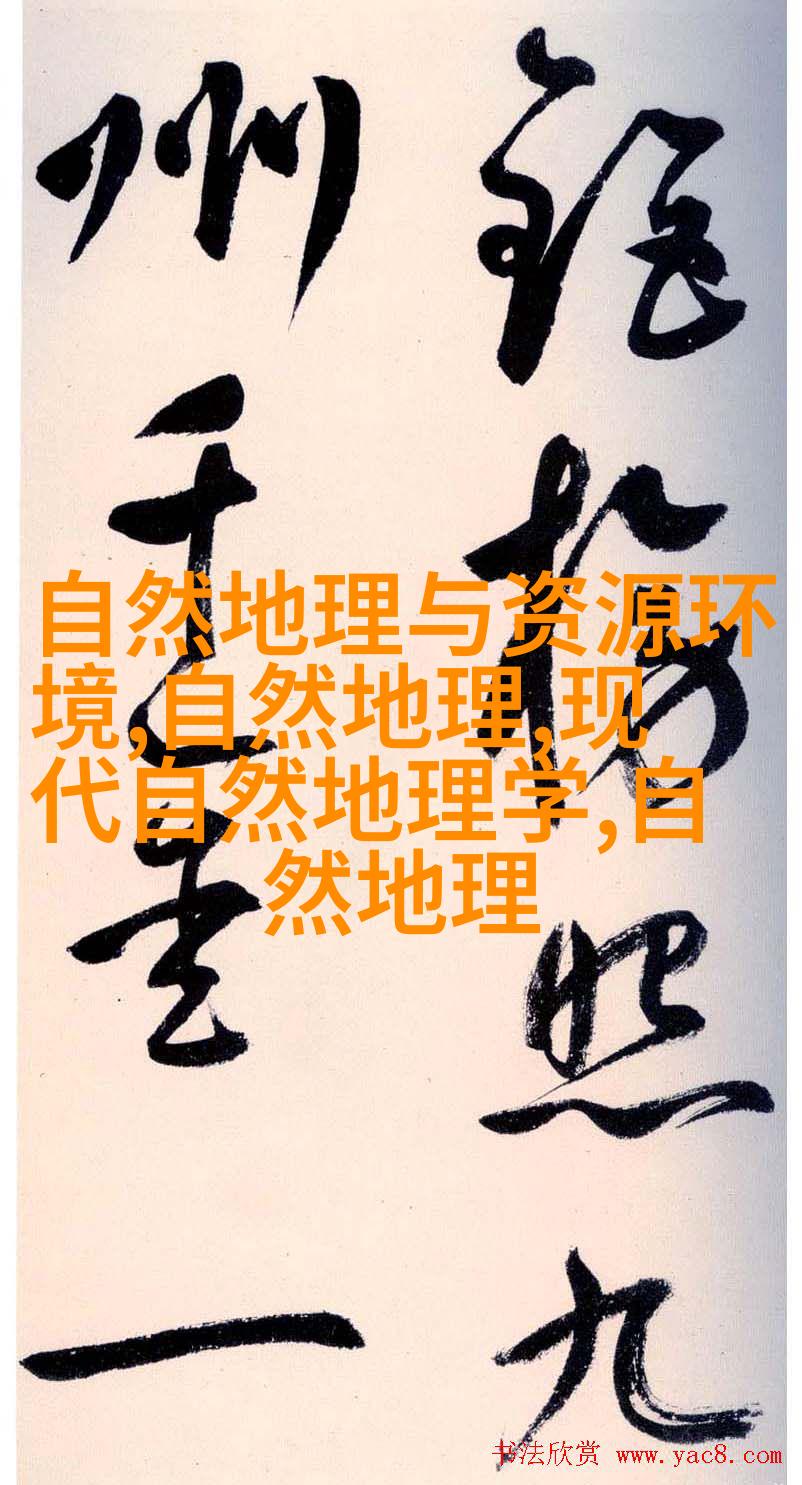 自然地理与资源环
境,自然地理,现
代自然地理学,自
然地理
照九
州一
书法欣赏 www.yac8.com